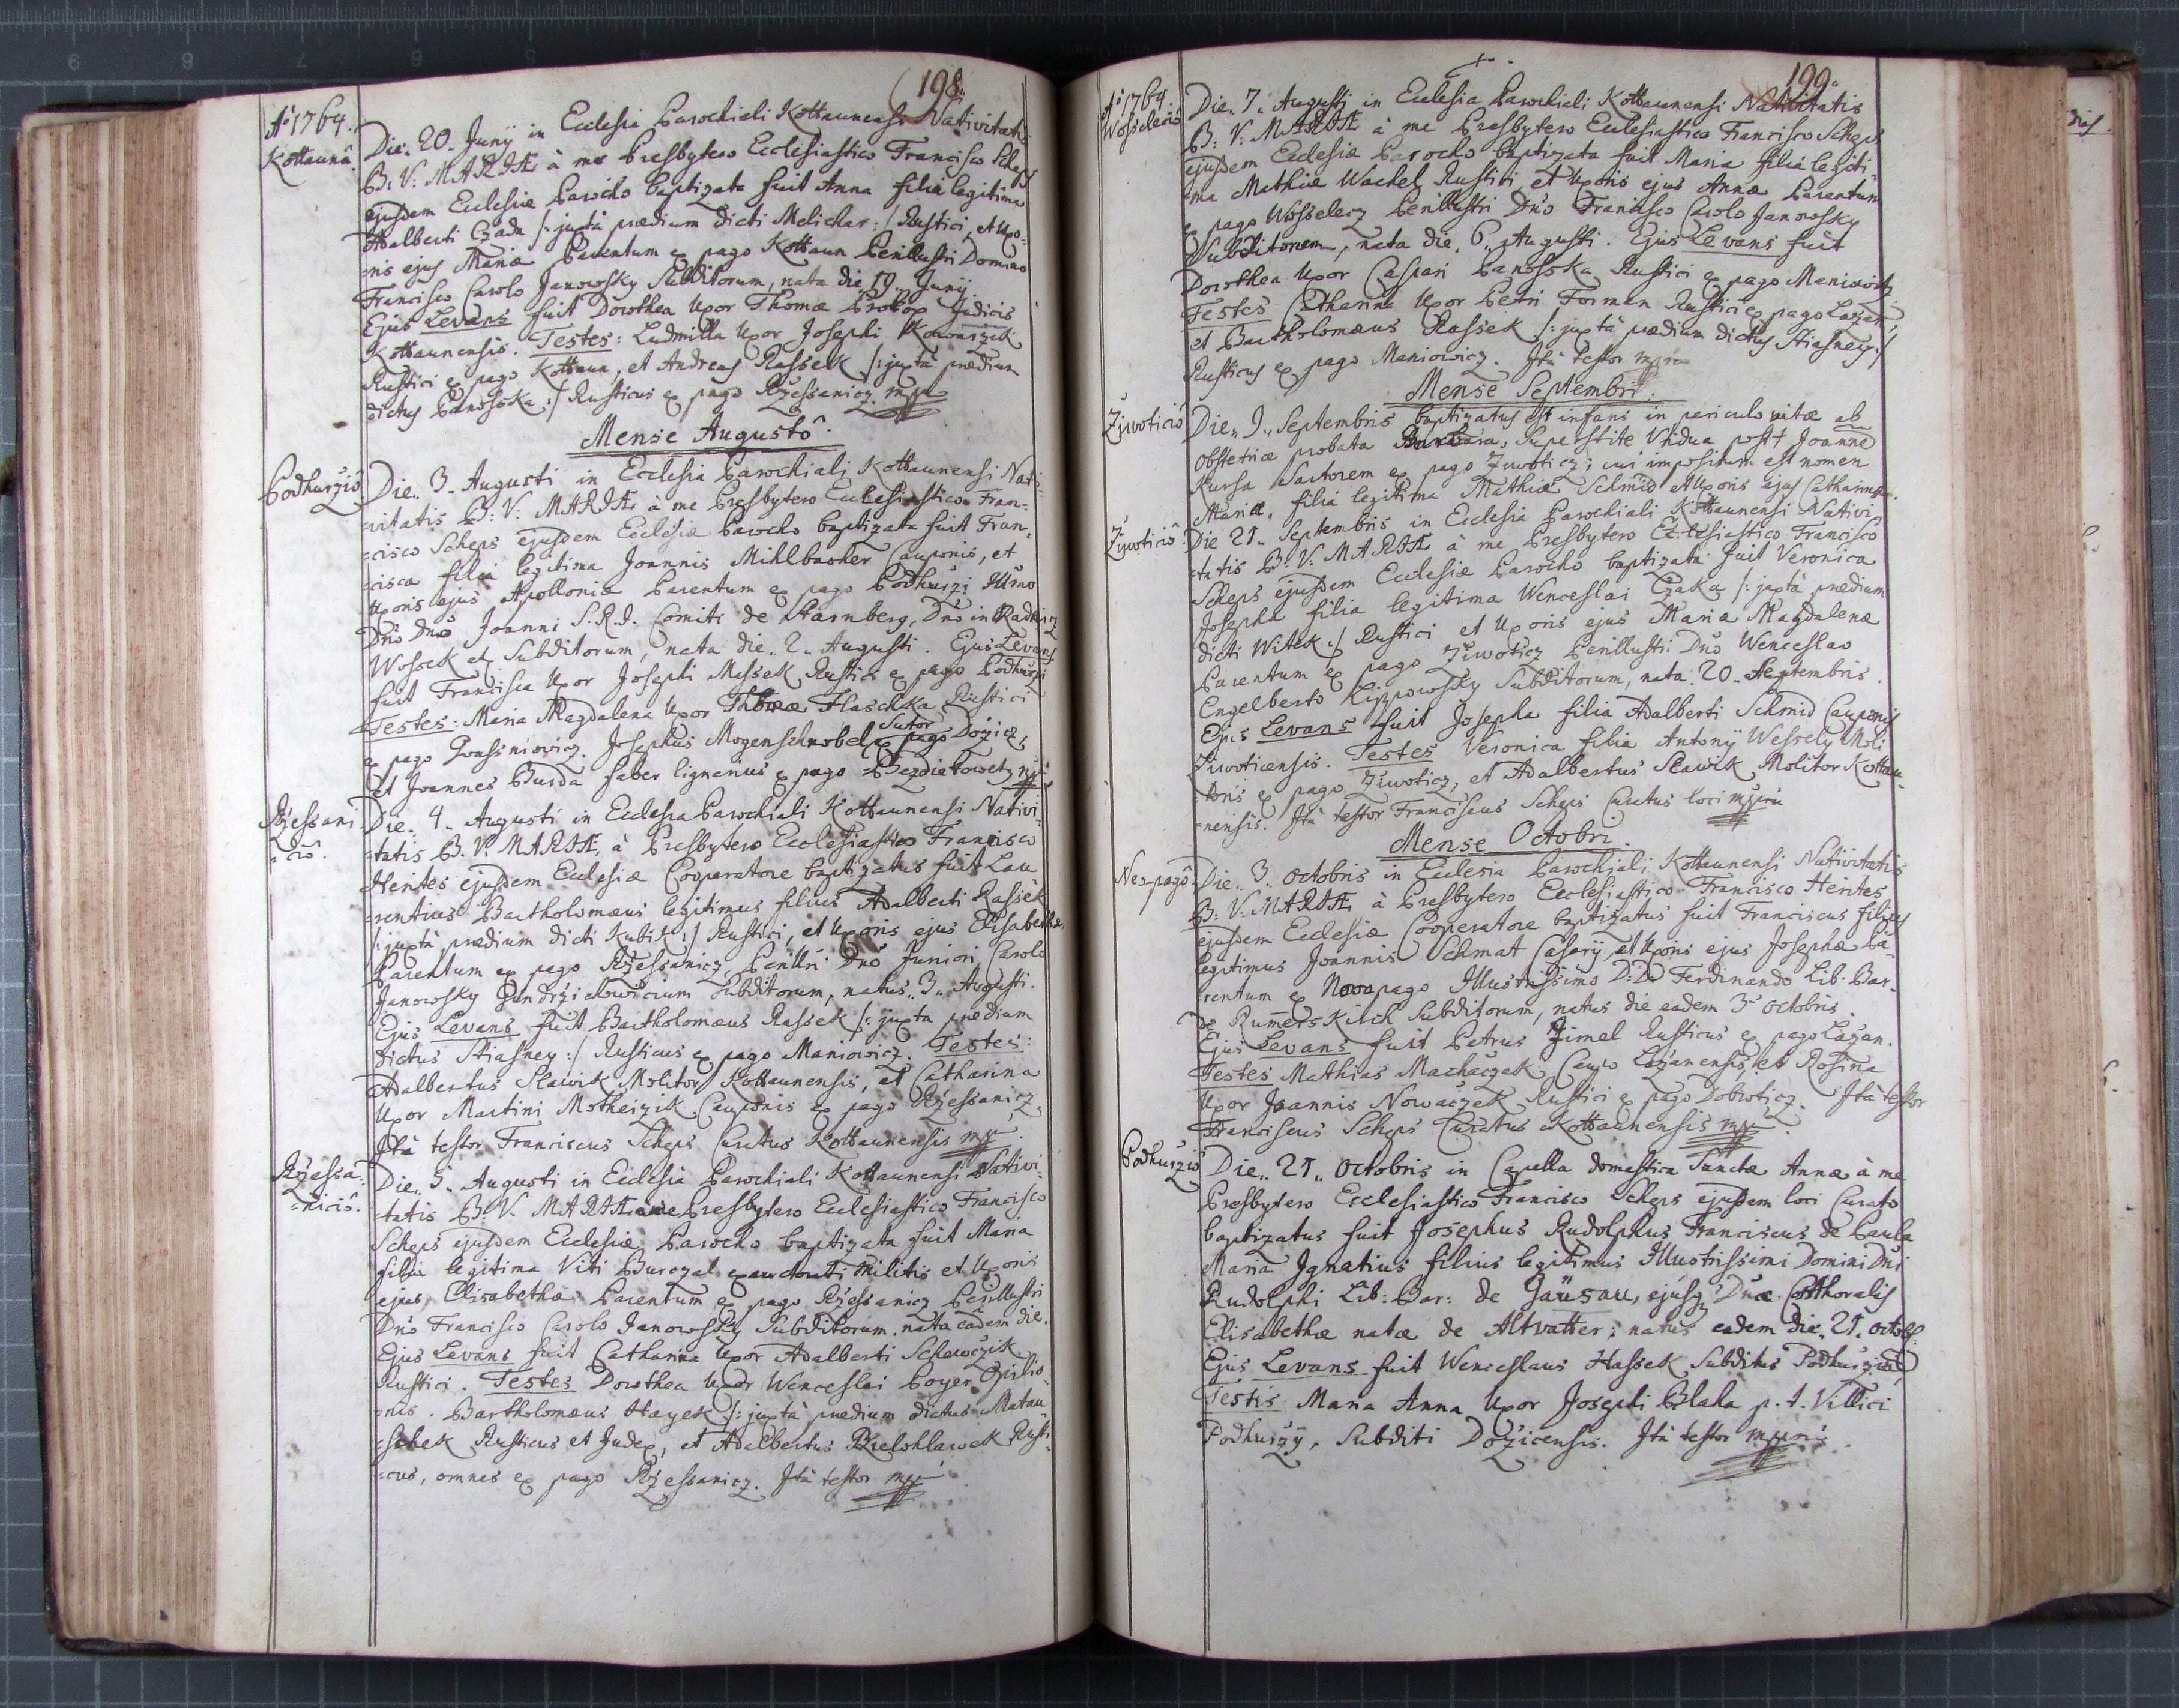 198.
Aô 1764.
Kottaunâ.
Die. 20. Junÿ in Ecclesia Parochiali Kottaunensi Nativitatis
B: V: MARIÆ à me Presbytero Ecclesiastico Francisco Scheps
ejusdem Ecclesiæ Parocho baptizata fuit Anna filia legitima
Adalberti Czada /: juxtà prædium dicti Melichar :/ Rustici, et Uxo-
=ris ejus Mariæ Parentum ex pago Kottaun Perillustri Domino
Francisco Carolo Janowsky Subditorum, nata die 19. Junÿ
Ejus Levans fuit Dorothea Uxor Thomæ Prokop Judicis
Kottaunensis. Testes: Ludmilla Uxor Josephi Kowarzik
Rustici ex pago Kottaun, et Andreas Rassek /: juxtà prædium
dictus Panosska :/ Rusticus ex pago Rzessanicz. mpp
Mense Augustô.
Podhurziô
Die.. 3. Augusti in Ecclesia Parochiali Kottaunensi Nati-
=vitatis B: V: MARIÆ à me Presbytero Ecclesiastico Fran=
=cisco Scheps ejusdem Ecclesiæ Parocho baptizata fuit Fran-
=cisca filia legitima Joannis Mihlbacher Cauponis, et
Uxoris ejus Apolloniæ Parentum ex pago Podhurzi Illmo
Dno Dno Joanni S. R. I. Comiti de Starnberg, Dno in Radnicz
Wossek etc Subditorum, nata die 2. Augusti. Ejus Levans
fuit Francisca Uxor Josephi Missek Rustici ex pago Podhurzi
Testes: Maria Magdalena Uxor Thomæ Haschka Rustici
ex pago Gonssniowicz. Josephus Mogenschnobel Sutor ex pago Dozicz,
et Joannes Burda faber lignarius ex pago Bezdiekowetz mpp
Rzessani-
=ciô.
Die. 4. Augusti in Ecclesia Parochiali Kottaunensi Nativi-
=tatis B. V. MARIÆ, à Presbytero Ecclesiastico Francisco
Herites ejusdem Ecclesiæ Cooperatore baptizatus fuit Lau
=rentius Bartholomæus legitimus filius Adalberti Rassek
/: juxtà prædium dicti Kubik :/ Rustici, et Uxoris ejus Elisabethæ
Parentum ex pago Rzessanicz, Perillri Dno Juniori Carolo
Janowsky Gindrzichowicium Subditorum, natus. 3. Augusti.
Ejus Levans fuit Bartholomæus Rassek /: juxta prædium
dictus Stiasney :/ Rusticus ex pago Maniowicz. Testes:
Adalbertus Slawik Molitor Kottaunensis, et Catharina
Uxor Martini Motheizik Cauponis ex pago Rzessanicz,
Ità testor Franciscus Scheps Curatus Kottaunensis mpp.
Rzessa-
=niciô.
Die.. 5. Augusti in Ecclesia Parochiali Kottaunensi Nativi-
=tatis B. V. MARIÆ à me Presbytero Ecclesiastico Francisco
Scheps ejusdem Ecclesiæ Parocho baptizata fuit Maria
filia legitima Viti Burczal exauctorati Militis et Uxoris
ejus Elisabethæ Parentum ex pago Rzessanicz Perillustri
Dno Francisco Carolo Janowsky Subditorum. nata eâdem die.
Ejus Levans fuit Catharina Uxor Adalberti Schewczik
Rustici. Testes Dorothea Uxor Wenceslai Poyer Opilio-
=nis. Bartholomæus Hayek /: juxtà prædium dictus Matau-
=schek Rusticus et Judex, et Adalbertus Brelohlawek Rusti-
=cus, omnes ex pago Rzessanicz. Ità testor mpp.
199.
Aô 1764.
Wosseleciô
Die.. 7. Augusti in Ecclesia Parochiali Kottaunensi Nativitatis
B: V: MARIÆ à me Presbytero Ecclesiastico Francisco Scheps
ejusdem Ecclesiæ Parocho baptizata fuit Maria filia legiti-
=ma Mathiæ Wachel Rustici, et Uxoris ejus Annæ Parentum
ex pago Wosselecz Perillustri Dno Francisco Carolo Janowsky
Subditorum, nata die. 6. Augusti. Ejus Levans fuit
Dorothea Uxor Caspari Panosska Rustici ex pago Maniowitz
Testes Catharina Uxor Petri Forman Rustici ex pago Lazan,
et Bartholomæus Rassek /: juxtà prædium dictus Stiasney :/
Rusticus ex pago Maniowicz. Ità testor mpria
Mense Septembri.
Ziwoticiô
Die.. 9. Septembris baptizatus est infans in periculo vitæ ab
obstetrice probata Barbara, Superstite Vidua post † Joanne
Kursa Sartorem ex pago Ziwoticz; cui impositum est nomen
Maria, filia legitima Mathiæ Schmid et Uxoris ejus Catharinæ.
Ziwoticiô
Die 21. Septembris in Ecclesia Parochiali Kottaunensi Nativi-
=tatis B. V. MARIÆ à me Presbytero Ecclesiastico Francisco
Scheps ejusdem Ecclesiæ Parocho baptizata fuit Veronica
Josepha filia legitima Wenceslai Czaka /: juxtà prædium
dicti Witek :/ Rustici et Uxoris ejus Mariæ Magdalenæ
Parentum ex pago Ziwoticz Perillustri Dno Wenceslao
Engelberto Lippowsky Subditorum, nata. 20. Septembris.
Ejus Levans fuit Josepha filia Adalberti Schmid Cauponis
Ziwoticensis. Testes Veronica filia Antonÿ Wessely Moli-
=toris ex pago Ziwoticz, et Adalbertus Slawik Molitor Kottau-
=nensis. Ità testor Franciscus Scheps Curatus loci mpria
Mense Octobri.
Neo-pagô.
Die.. 3. octobris in Ecclesia Parochiali Kottaunensi Nativitatis
B: V: MARIÆ à Presbytero Ecclesiastico Francisco Herites
ejusdem Ecclesiæ Cooperatore baptizatus fuit Franciscus filius
legitimus Joannis Schmat Casarÿ, et Uxoris ejus Josephæ Pa-
=rentum ex Novopago Illustrissimo D: Do Ferdinando Lib. Bar.
de Rumerskirch Subditorum, natus die eadem 3 octobris.
Ejus Levans fuit Petrus Zimel Rusticus ex pago Lazan.
Testes Mathias Machaczek Caupo Lazanensis, et Rosina
Uxor Joannis Nowaczek Rustici ex pago Dobroticz. Ità testor
Franciscus Scheps Curatus Kottaunensis mpp.
Podhurziô
Die.. 21.. octobris in Capella domestica Sanctæ Annæ à me
Presbytero Ecclesiastico Francisco Scheps ejusdem loci Curato
baptizatus fuit Josephus Rudolphus Franciscus de Paula
Maria Ignatius filius legitimus Illustrissimi Domini Dni
Rudolphi Lib: Bar: de Gaüsau, ejusq Dnæ Conthoralis
Elisabethæ natæ de Altvatter; natus eadem die. 21. octobr:
Ejus Levans fuit Wenceslaus Hassek Subditus Podhurziens,
Testis Maria Anna Uxor Josephi Blaha p. t. Villici
Podhurzÿ, Subditi Dozicensis. Ità testor mpria.